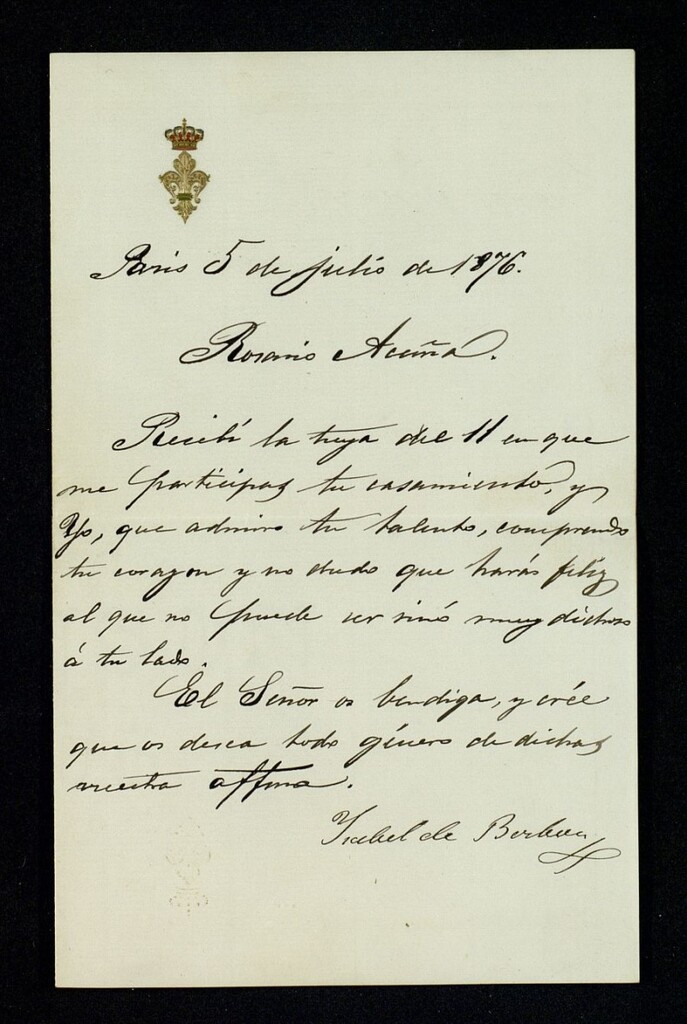 Paris 5 de julio de 1876.
Rosario Acuña.
Recibí la tuya del 11 en que
me participas tu casamiento, y
Yo, que admiro tu talento, comprendo
tu corazon y no dudo que harás feliz
al que no puede ser sinó muy dichoso
á tu lado.
El Señor os bendiga, y crée
que os desea todo género de dichas
vuestra affma.
Isabel de Borbon